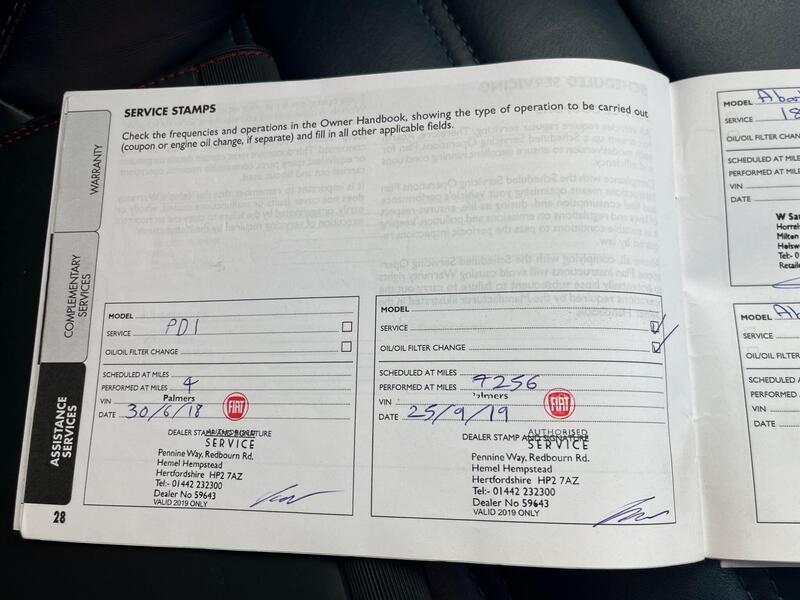 SERVICE STAMPS
Check the frequencies and operations in the Owner Handbook, showing the type of operation to be carried out
(coupon or engine oil change, if separate) and fill in all other applicable fields.
WARRANTY
COMPLEMENTARY
SERVICES
ASSISTANCE
SERVICES
MODEL
SERVICE PDI
OIL/OIL FILTER CHANGE
SCHEDULED AT MILES
PERFORMED AT MILES 4
Palmers
VIN
DATE 30/6/18
FIAT
DEALER STAMP AND SIGNATURE
SERVICE
Pennine Way, Redbourn Rd.
Hemel Hempstead
Hertfordshire HP2 7AZ
Tel:- 01442 232300
Dealer No 59643
VALID 2019 ONLY
MODEL
SERVICE
OIL/OIL FILTER CHANGE
SCHEDULED AT MILES
PERFORMED AT MILES 7256
Palmers
VIN
DATE 25/9/19
FIAT
AUTHORISED
DEALER STAMP AND SIGNATURE
SERVICE
Pennine Way, Redbourn Rd.
Hemel Hempstead
Hertfordshire HP2 7AZ
Tel:- 01442 232300
Dealer No 59643
VALID 2019 ONLY
28
MODEL Abar
SERVICE 18
OIL/OIL FILTER CHANG
SCHEDULED AT MILE
PERFORMED AT MILE
VIN
DATE
W Sa
Horrel
Milton
Holsw
Tel:- 0
Retaile
MODEL Ab
SERVICE
OIL/OIL FILTER CHA
SCHEDULED A
PERFORMED AT
VIN
DATE